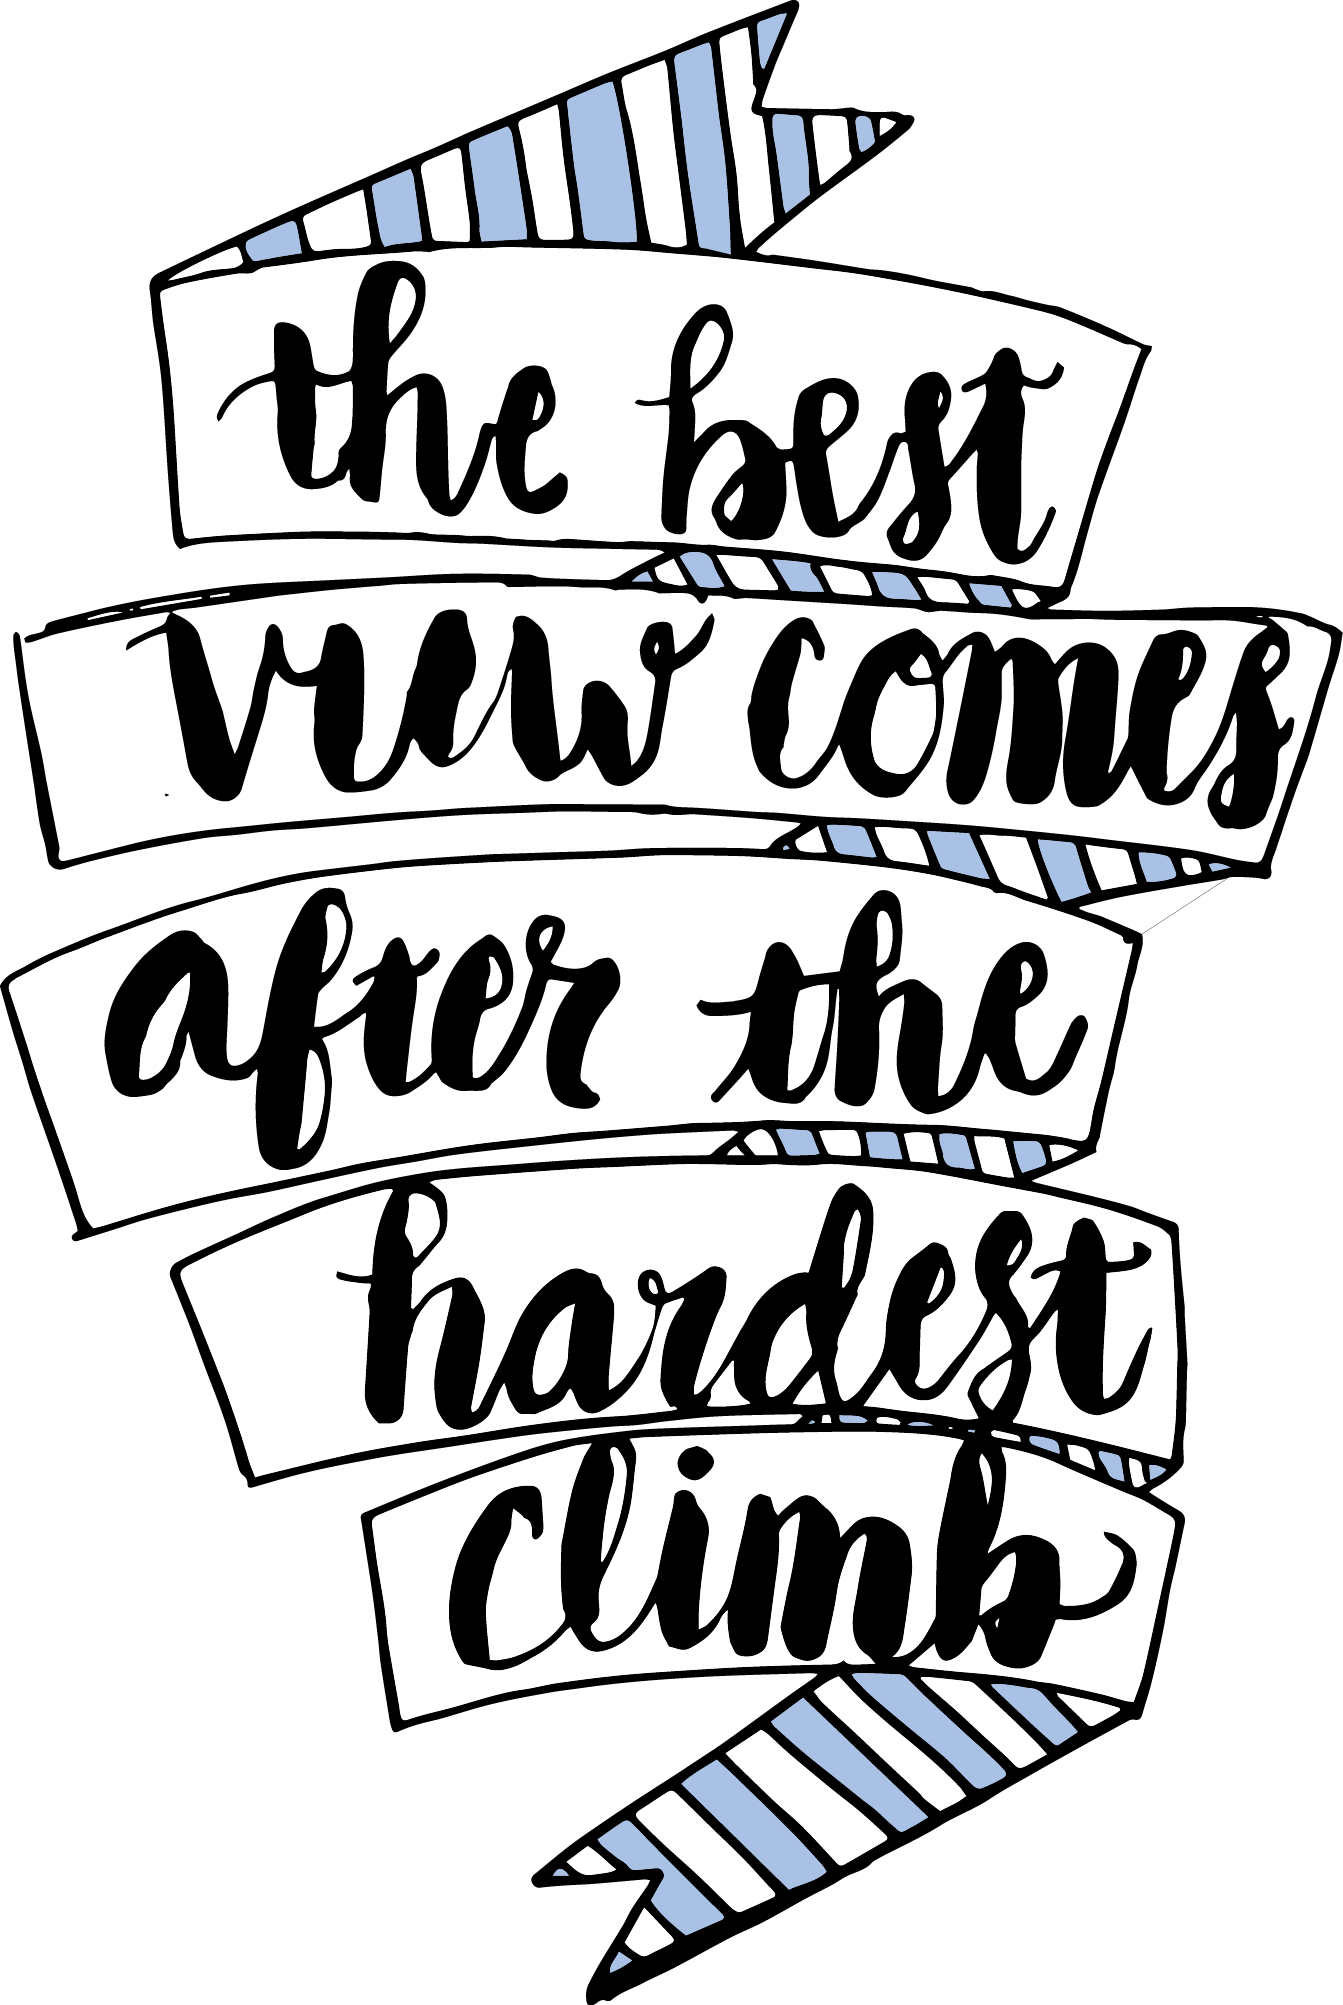 the best
view comes
after the
hardest
climb